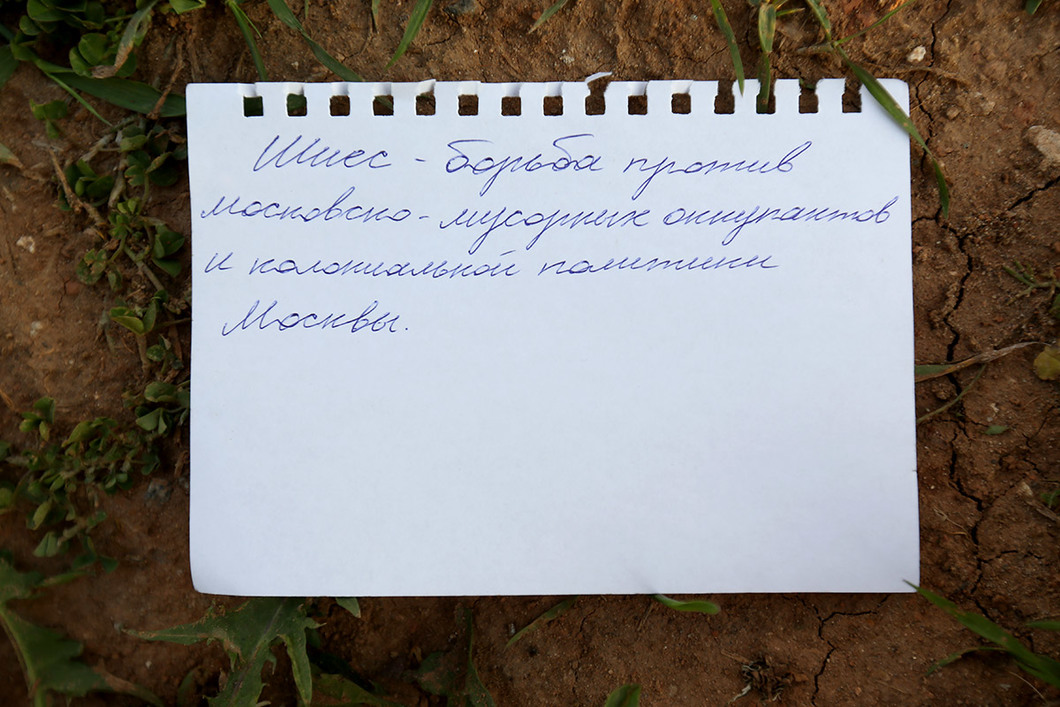 Шиес - борьба против
московско-мусорных оккупантов
и колониальной политики
Москвы.